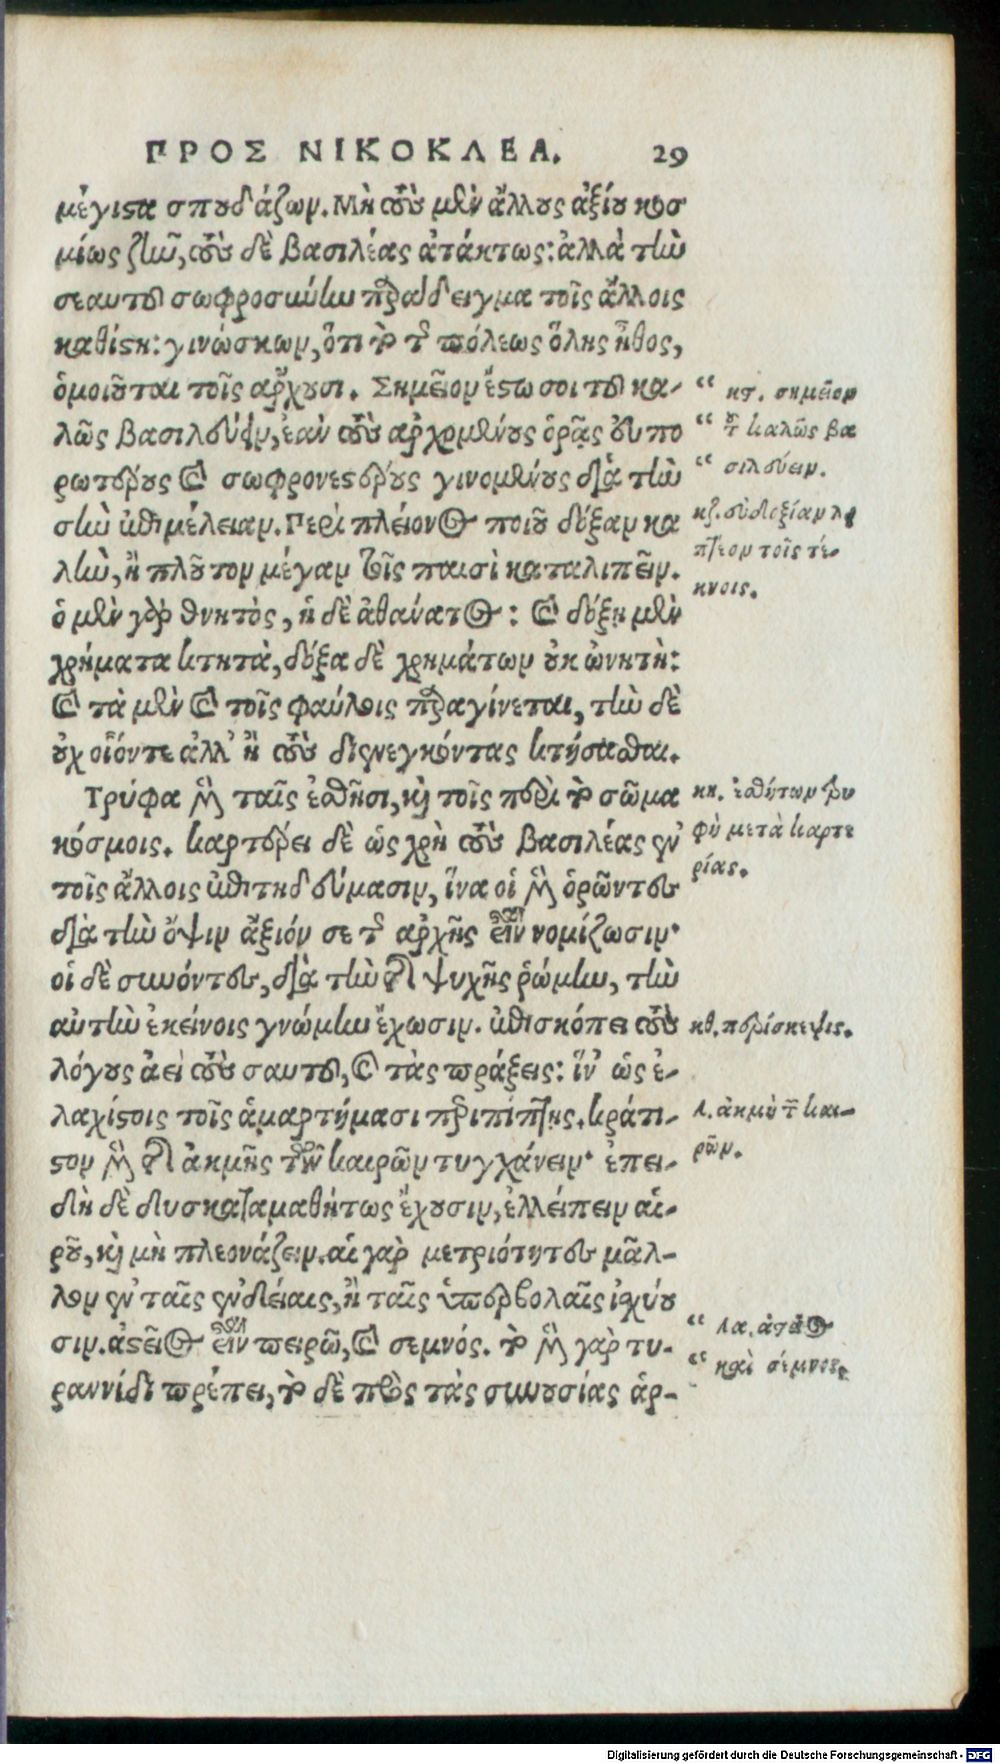 ΠΡΟΣ ΝΙΚΟΚΛΕΑ. 29
μέγιστα σπουδάζων. Μὴ τοὺς μὲν ἄλλους ἀξίου κοσ
μίως ζῆν, τοὺς δὲ βασιλέας ἀτάκτως: ἀλλὰ τὴν
σεαυτοῦ σωφροσύνην παράδειγμα τοῖς ἄλλοις
καθίστη: γινώσκων, ὅτι τὸ τῆς πόλεως ὅλης ἦθος,
ὁμοιοῦται τοῖς ἄρχουσι. Σημεῖον ἔστω σοι τοῦ κα-
λῶς βασιλεύειν, ἐὰν τοὺς ἀρχομένους ὁρᾷς εὐπο
ρωτέρους καὶ σωφρονεστέρους γινομένους διὰ τὴν
σὴν ἐπιμέλειαν. Περὶ πλείονος ποιοῦ δόξαν κα
λὴν, ἢ πλοῦτον μέγαν τοῖς παισὶ καταλιπεῖν.
ὁ μὲν γὰρ θνητὸς, ἡ δὲ ἀθάνατος: καὶ δόξῃ μὲν
χρήματα κτητὰ, δόξα δὲ χρημάτων οὐκ ὠνητὴ:
καὶ τὰ μὲν καὶ τοῖς φαύλοις παραγίνεται, τὴν δὲ
οὐχ οἷόντε ἀλλ' ἢ τοὺς διενεγκόντας κτήσασθαι.
Τρύφα μὲν ταῖς ἐσθῆσι, καὶ τοῖς περὶ τὸ σῶμα
κόσμοις. καρτέρει δὲ ὡς χρὴ τοὺς βασιλέας ἐν
τοῖς ἄλλοις ἐπιτηδεύμασιν, ἵνα οἱ μὲν ὁρῶντες
διὰ τὴν ὄψιν ἄξιόν σε τῆς ἀρχῆς εἶναι νομίζωσιν·
οἱ δὲ συνόντες, διὰ τὴν τῆς ψυχῆς ῥώμην, τὴν
αὐτὴν ἐκείνοις γνώμην ἔχωσιν. ἐπισκόπει τοὺς
λόγους ἀεὶ τοὺς σαυτοῦ, καὶ τὰς πράξεις: ἵν' ὡς ἐ-
λαχίστοις τοῖς ἁμαρτήμασι περιπίπτῃς. κράτι-
στον μὲν τῆς ἀκμῆς τῶν καιρῶν τυγχάνειν· ἐπει-
δὴ δὲ δυσκαταμαθήτως ἔχουσιν, ἐλλείπειν αἱ-
ροῦ, καὶ μὴ πλεονάζειν. αἱ γὰρ μετριότητες μᾶλ-
λον ἐν ταῖς ἐνδείαις, ἢ ταῖς ὑπερβολαῖς ἰσχύου
σιν. ἀστεῖος εἶναι πειρῶ, καὶ σεμνός. τὸ μὲν γὰρ τυ-
ραννίδι πρέπει, τὸ δὲ πρὸς τὰς συνουσίας ἁρ-
“ κϛ. σημεῖον
“ τοῦ καλῶς βα
“ σιλεύειν.
κζ. εὐδοξίαν λη
πτέον τοῖς τέ-
κνοις.
κη. ἐσθήτων τρυ
φὴ μετὰ καρτε
ρίας.
κθ. περίσκεψις.
λ. ἀκμὴ τῶν και-
ρῶν.
“ λα. ἀστεῖος
“ καὶ σέμνος.
Digitalisierung gefördert durch die Deutsche Forschungsgemeinschaft - DFG